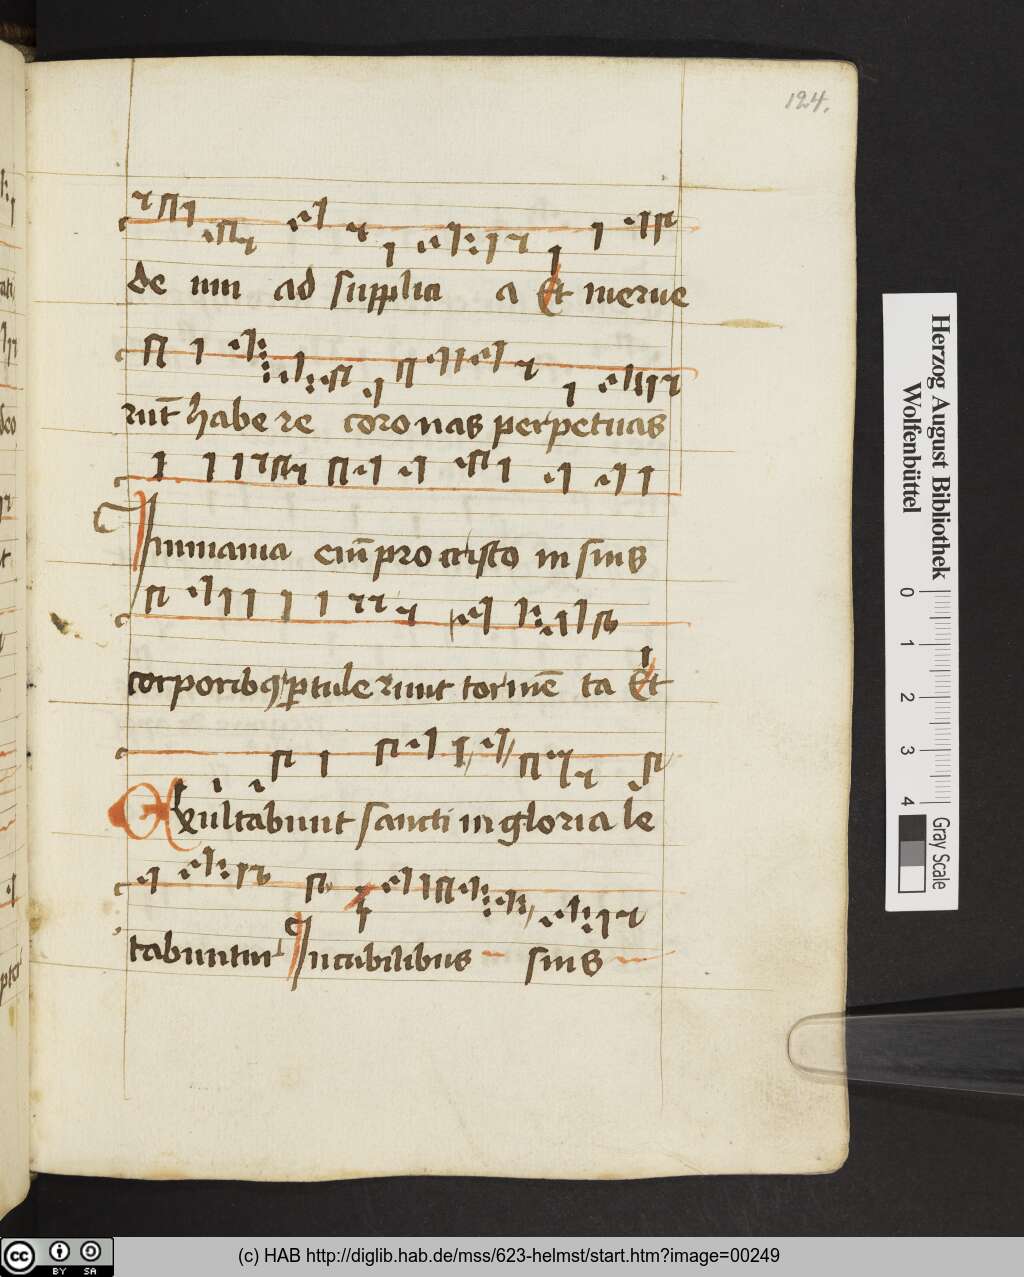 124.
de um ad supplici a Et merue
rūt habe re coronas perpetuas
Inmania eni͞ pro cristo in suis
corporibꝫ ꝑtule runt tormē ta Et
Exultabunt sancti in gloria le
tabuntur In cubilibus suis
Herzog August Bibliothek
Wolfenbüttel
0 1 2 3 4
Gray Scale
cc BY SA
(c) HAB http://diglib.hab.de/mss/623-helmst/start.htm?image=00249